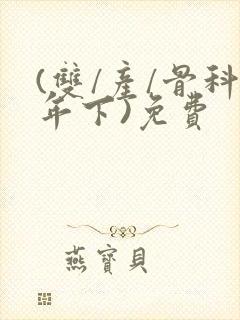 (雙/產/骨科
年下)免費
燕寶貝